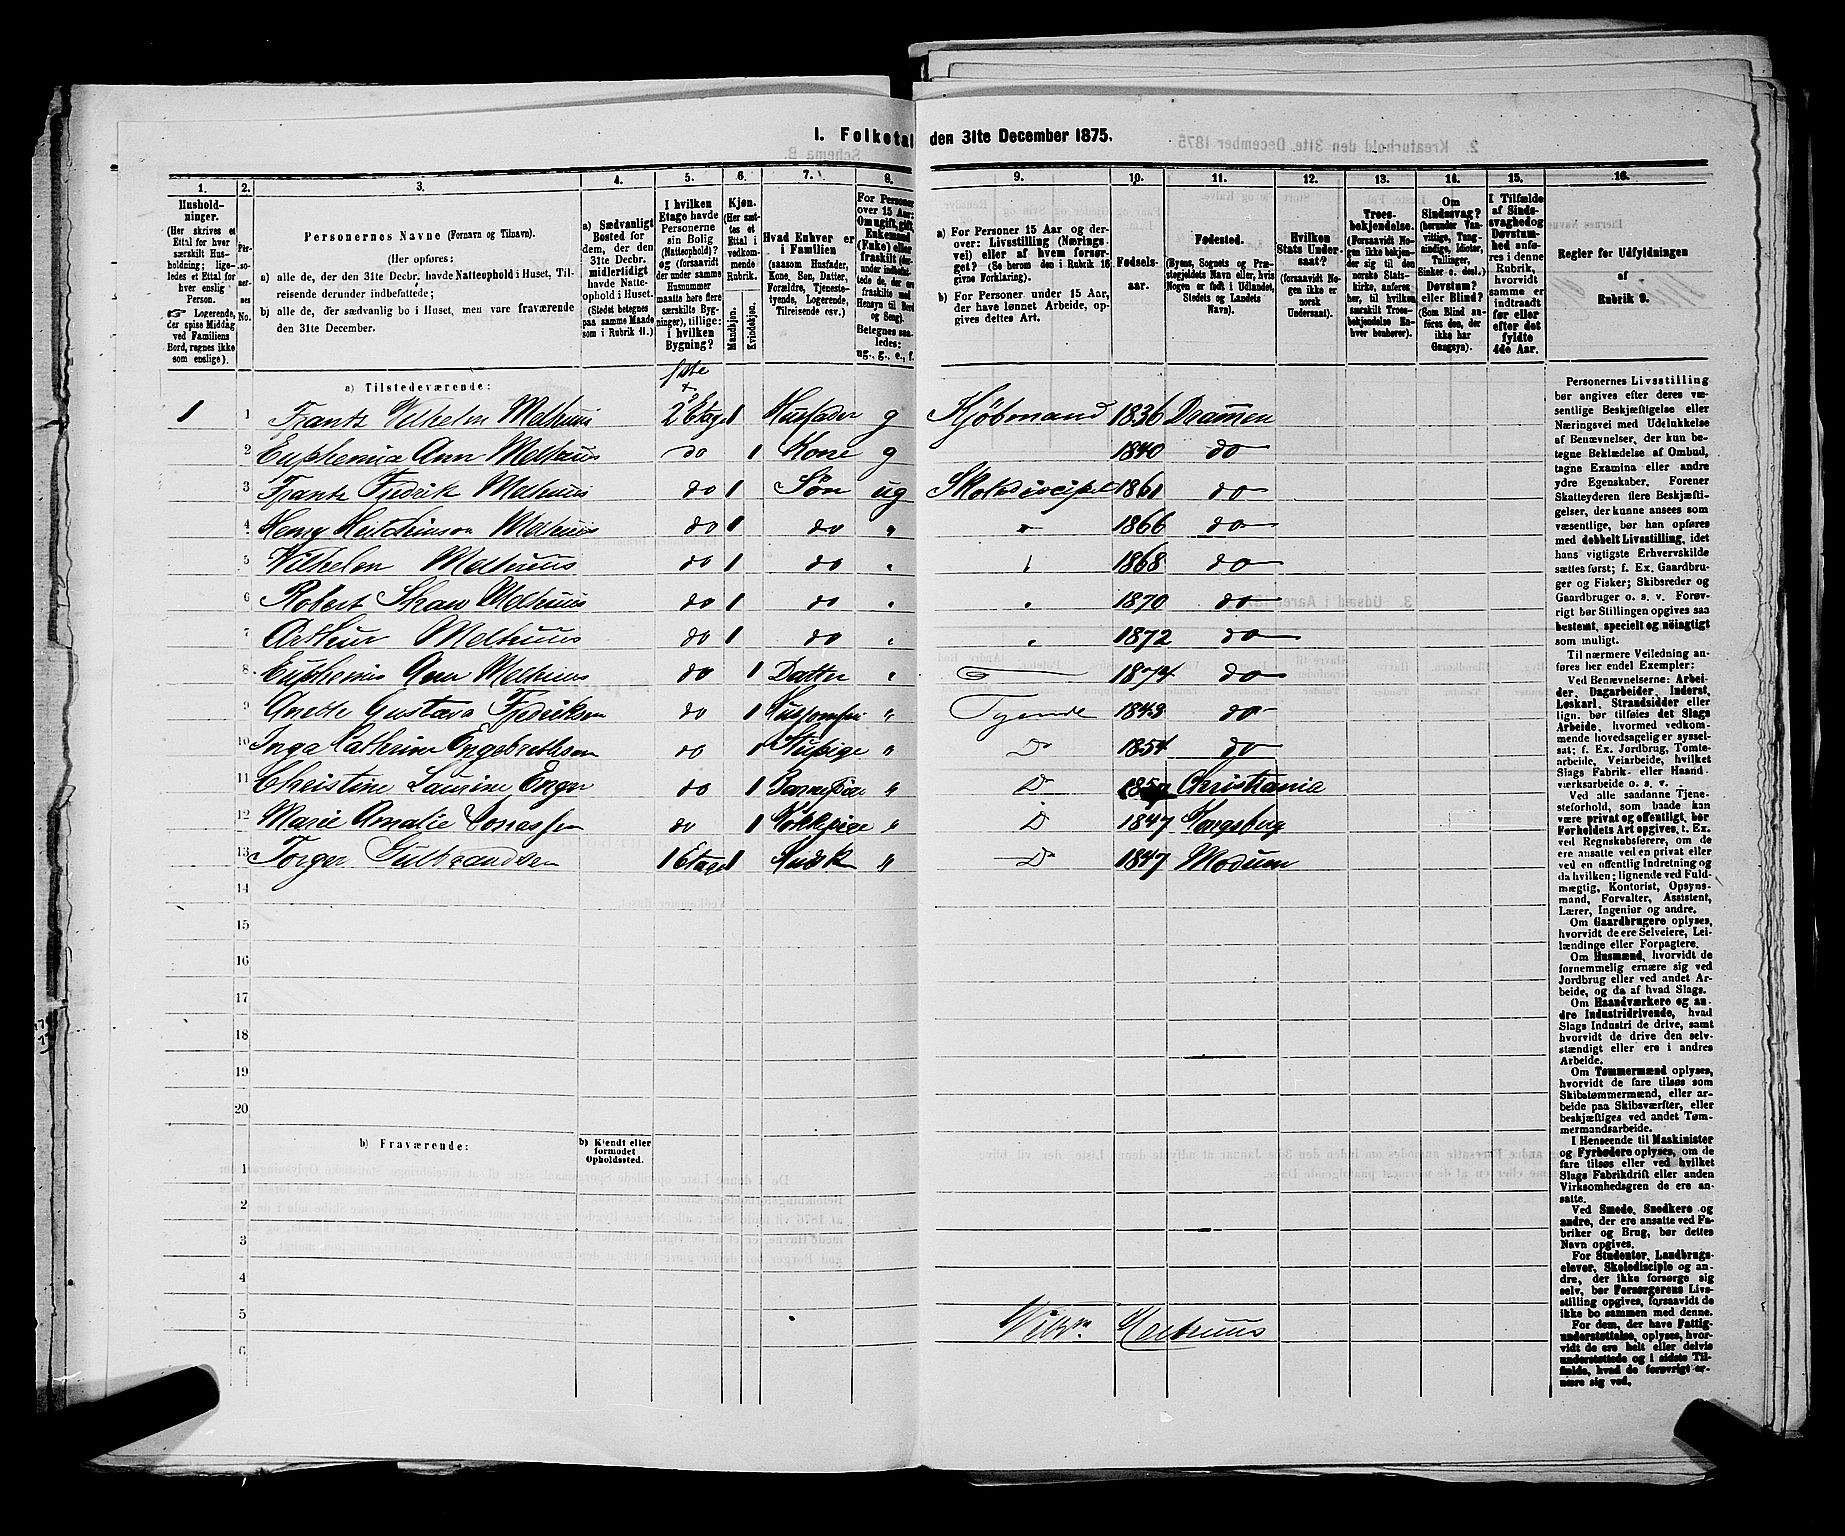 I. Folketal den 31te December 1875.
1. 2. 3. 4. 5. 6. 7. 8. 9. 10. 11. 12. 13. 14. 15. 16.
Husholdninger.
(Her skrives et
Ettal for hver
særskilt Husholdning;
ligeledes et Ettal for
hver enslig
Person.
☞ Logerende,
der spise Middag
ved Familiens
Bord, regnes ikke
som enslige).
Personernes No.
Personernes Navne (Fornavn og Tilnavn).
(Her opføres:
a) alle de, der den 31te Decbr. havde Natteophold i Huset, Tilreisende
derunder indbefattede;
b) alle de, der sædvanlig bo i Huset, men vare fraværende
den 31te December.
a) Sædvanligt
Bosted for
dem, der den
31te Decbr.
midlertidigt
havde Natteophold
i Huset.
(Stedet betegnes
paa samme Maade
som i Rubrik 11.)
I hvilken
Etage havde
Personerne
sin Bolig
(Natteophold)?
og (forsaavidt
der under samme
Husnummer
maatte høre flere
særskilte Bygninger),
tillige:
i hvilken
Bygning?
Kjøn.
(Her sættes
et
Ettal i
vedkommende
Rubrik.
Mandkjøn.
Kvindekjøn.
Hvad Enhver er
i Familien
(saasom Husfader,
Kone, Søn, Datter,
Forældre, Tjenestetyende,
Logerende,
Tilreisende osv.)
For Personer
over 15 Aar:
Om ugift, gift,
Enkemand
(Enke) eller
fraskilt
Betegnes saaledes:
ug., g., e., f.
a) For Personer 15 Aar og derover:
Livsstilling (Næringsvei)
eller af hvem forsørget?
(Se herom den i Rubrik 16
givne Forklaring).
b) For Personer under 15 Aar,
der have lønnet Arbeide, opgives
dettes Art.
Fødselsaar.
Fødested.
(Byens, Sognets og Præstegjeldets
Navn eller, hvis
Nogen er født i Udlandet,
Stedets og Landets
Navn).
Hvilken
Stats Undersaat?
(forsaavidt
Nogen ikke er
norsk
Undersaat).
Troesbekjendelse.
(Forsaavidt Nogen
ikke bekjender
sig til den
norske Statskirke,
anføres
her, til hvilken
særskilt Troesbekjendelse
Enhver
henhører).
Om
Sindssvag?
(herunder Vanvittige,
Tungsindige,
Idioter,
Tullinger,
Sinker o. desl.)
Døvstum?
eller Blind?
(Som Blind anføres
den, der
ikke har
Gangsyn).
I Tilfælde
af Sindssvaghed
og
Døvstumhed
anføres
i denne
Rubrik,
hvorvidt
samme er
indtraadt
før eller
efter det
fyldte
4de Aar.
Regler for Udfyldningen
af
Rubrik 9.
a) Tilstedeværende:
1 1 Frantz Vilhelm Melhuus 2 Etage 1 Husfader g Kjøbmand 1836 Drammen
2 Euphemia Ann Melhuus do 1 Kone g 1840 do
3 Frantz Fredrik Melhuus do 1 Søn ug Skoledisipel 1861 do
4 Henry Hutchinson Melhuus do 1 do " " 1866 do
5 Vilhelm Melhuus do 1 do " " 1868 do
6 Robert Shaw Melhuus do 1 do " " 1870 do
7 Arthur Melhuus do 1 do " " 1872 do
8 Euphemia Ann Melhuus do 1 Datter " 1874 do
9 Anette Gustava Fredriksen do 1 " Tyende 1843 do
10 Inga Cathrine Engebrethsen do 1 Stupige " Do 1854 do
11 Christine Laurine Enger do 1 Barnepige " Do Christiania
12 Marie Amalie Jonassen do 1 Kokkepige " Do 1847 Kongsberg
13 Torger Gulbrandsen 1 Etage 1 Kudsk " Do 1847 Modum
14
15
16
17
18
19
20
b) Fraværende:
b) Kjendt eller
formodet
Opholdssted.
1
2
3
4
5
6
Vilh. Melhuus
Personernes Livsstilling
bør angives efter deres væsentlige
Beskjæftigelse eller
Næringsvei med Udelukkelse
af Benævnelser, der kun betegne
Beklædelse af Ombud,
tagne Examina eller andre
ydre Egenskaber. Forener
Skatteyderen flere Beskjæftigelser,
der kunne ansees som
væsentlige, bør han opføres
med dobbelt Livsstilling, idet
hans vigtigste Erhvervskilde
sættes først; f. Ex. Gaardbruger
og Fisker; Skibsreder og
Gaardbruger o. s. v. Forøvrigt
bør Stillingen opgives saa
bestemt, specielt og nöiagtigt
som muligt.
Til nærmere Veiledning anføres
her endel Exempler:
Ved Benævnelserne: Arbeider,
Dagarbeider, Inderst,
Løskarl, Strandsidder eller
lign. bør tilføies det Slags
Arbeide, hvormed vedkommende
hovedsagelig er sysselsat;
f. Ex. Jordbrug, Tomtearbeide,
Veiarbeide, hvilket
Slags Fabrik- eller Haandværksarbeide
o. s. v.
Ved alle saadanne Tjenesteforhold,
som baade kan
være privat og offentligt, bør
Forholdets Art opgives, t. Ex.
ved Regnskabsførere, om de
ere ansatte ved en privat eller
ved en offentlig Indretning og
da hvilken; lignende ved Fuldmægtig,
Kontorist, Opsynsmand,
Forvalter, Assistent,
Lærer, Ingeniør og andre.
Om Gaardbrugere oplyses,
hvorvidt de ere Selveiere, Leilændinge
eller Forpagtere.
Om Husmænd, hvorvidt de
fornemmelig ernære sig ved
Jordbrug eller ved andet Arbeide,
og da af hvad Slags.
Om Haandværkere og andre
Industridrivende, hvad
Slags Industri de drive, samt
hvorvidt de drive den selvstændigt
eller ere i andres
Arbeide.
Om Tømmermænd oplyses,
hvorvidt de fare tilsøs som
Skibstømmermænd, eller arbeide
paa Skibsværfter, eller
beskjæftiges ved andet Tømmermandsarbeide.
I Henseende til Maskinister
og Fyrbødere oplyses, om de
fare tilsøs eller ved hvilket
Slags Fabrikdrift eller anden
Virksomhedsgren de ere ansatte.
Ved Smede, Snedkere og
andre, der ere ansatte ved Fabriker
og Brug, bør dettes
Navn opgives.
For Studenter, Landbrugselever,
Skoledisciple og andre,
der ikke forsørge sig
selv, bør Forsørgerens Livsstilling
opgives, forsaavidt de
ikke bo sammen med denne.
For dem, der have Fattigunderstøttelse,
oplyses, hvorvidt
de ere helt eller delvis
understøttede og i sidste Tilfælde,
hvad de forøvrigt ernære
sig ved.